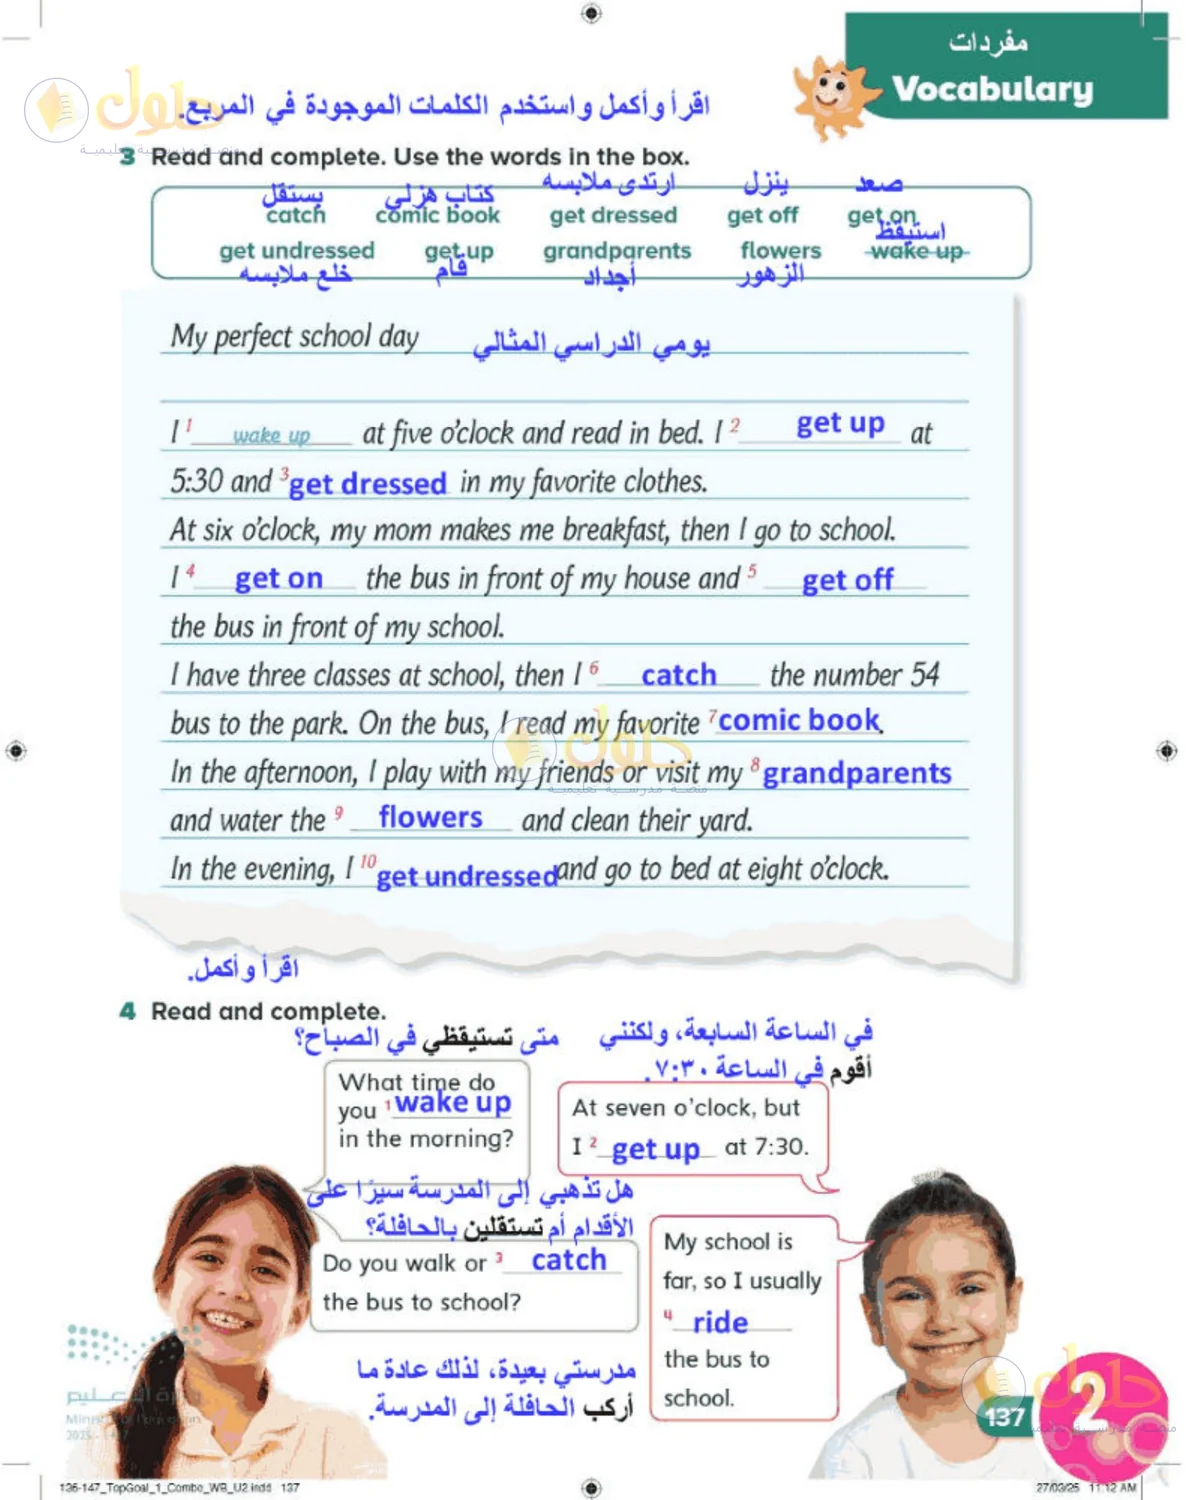 مفردات
Vocabulary
حلول
منصة مدرسية تعليمية
اقرأ وأكمل واستخدم الكلمات الموجودة في المربع.
3 Read and complete. Use the words in the box.
يستقل كتاب هزلي ارتدى ملابسه ينزل صعد
catch comic book get dressed get off get on
استيقظ
get undressed get up grandparents flowers wake up
خلع ملابسه قام أجداد الزهور
My perfect school day يومي الدراسي المثالي
I 1 wake up at five o'clock and read in bed. I 2 get up at
5:30 and 3 get dressed in my favorite clothes.
At six o'clock, my mom makes me breakfast, then I go to school.
I 4 get on the bus in front of my house and 5 get off
the bus in front of my school.
I have three classes at school, then I 6 catch the number 54
bus to the park. On the bus, I read my favorite 7 comic book.
حلول
In the afternoon, I play with my friends or visit my 8 grandparents
منصة مدرسية تعليمية
and water the 9 flowers and clean their yard.
In the evening, I 10 get undressed and go to bed at eight o'clock.
اقرأ وأكمل.
4 Read and complete.
متى تستيقظي في الصباح؟
What time do
you 1 wake up
in the morning?
في الساعة السابعة، ولكنني
أقوم في الساعة ٧:٣٠.
At seven o'clock, but
I 2 get up at 7:30.
هل تذهبي إلى المدرسة سيرًا على
الأقدام أم تستقلين بالحافلة؟
Do you walk or 3 catch
the bus to school?
My school is
far, so I usually
4 ride
the bus to
school.
مدرستي بعيدة، لذلك عادة ما
أركب الحافلة إلى المدرسة.
وزارة التعليم
Ministry of Education
2025 - 1447
حلول
منصة مدرسية تعليمية
137 2
136-147_TopGoal_1_Combo_WB_U2.indd 137 27/03/25 11:12 AM